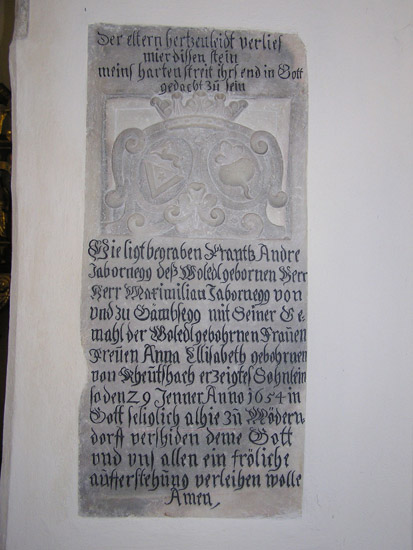 Der eltern hertzenleidt verlies
mier disen stein
meins harten streit ihrs end in Gott
gedacht zů sein
Hie ligt begraben Frantz Andre
Jabornegg deß Woledlgebornen Herr
Herr Maximilian Jabornegg von
vnd zu Gambsegg mit Seiner Ge
mahl der Woledlgebohrnen Frauen
Freuen Anna Ellisabeth gebohrnen
von Kheutshach erzeigtes Sohnlein
so den 29 Jenner Anno 1654 in
Gott seliglich alhie zů Mödern
dorff vershiden deme Gott
vnd vns allen ein fröliche
aufferstehůng verleihen wolle
Amen,